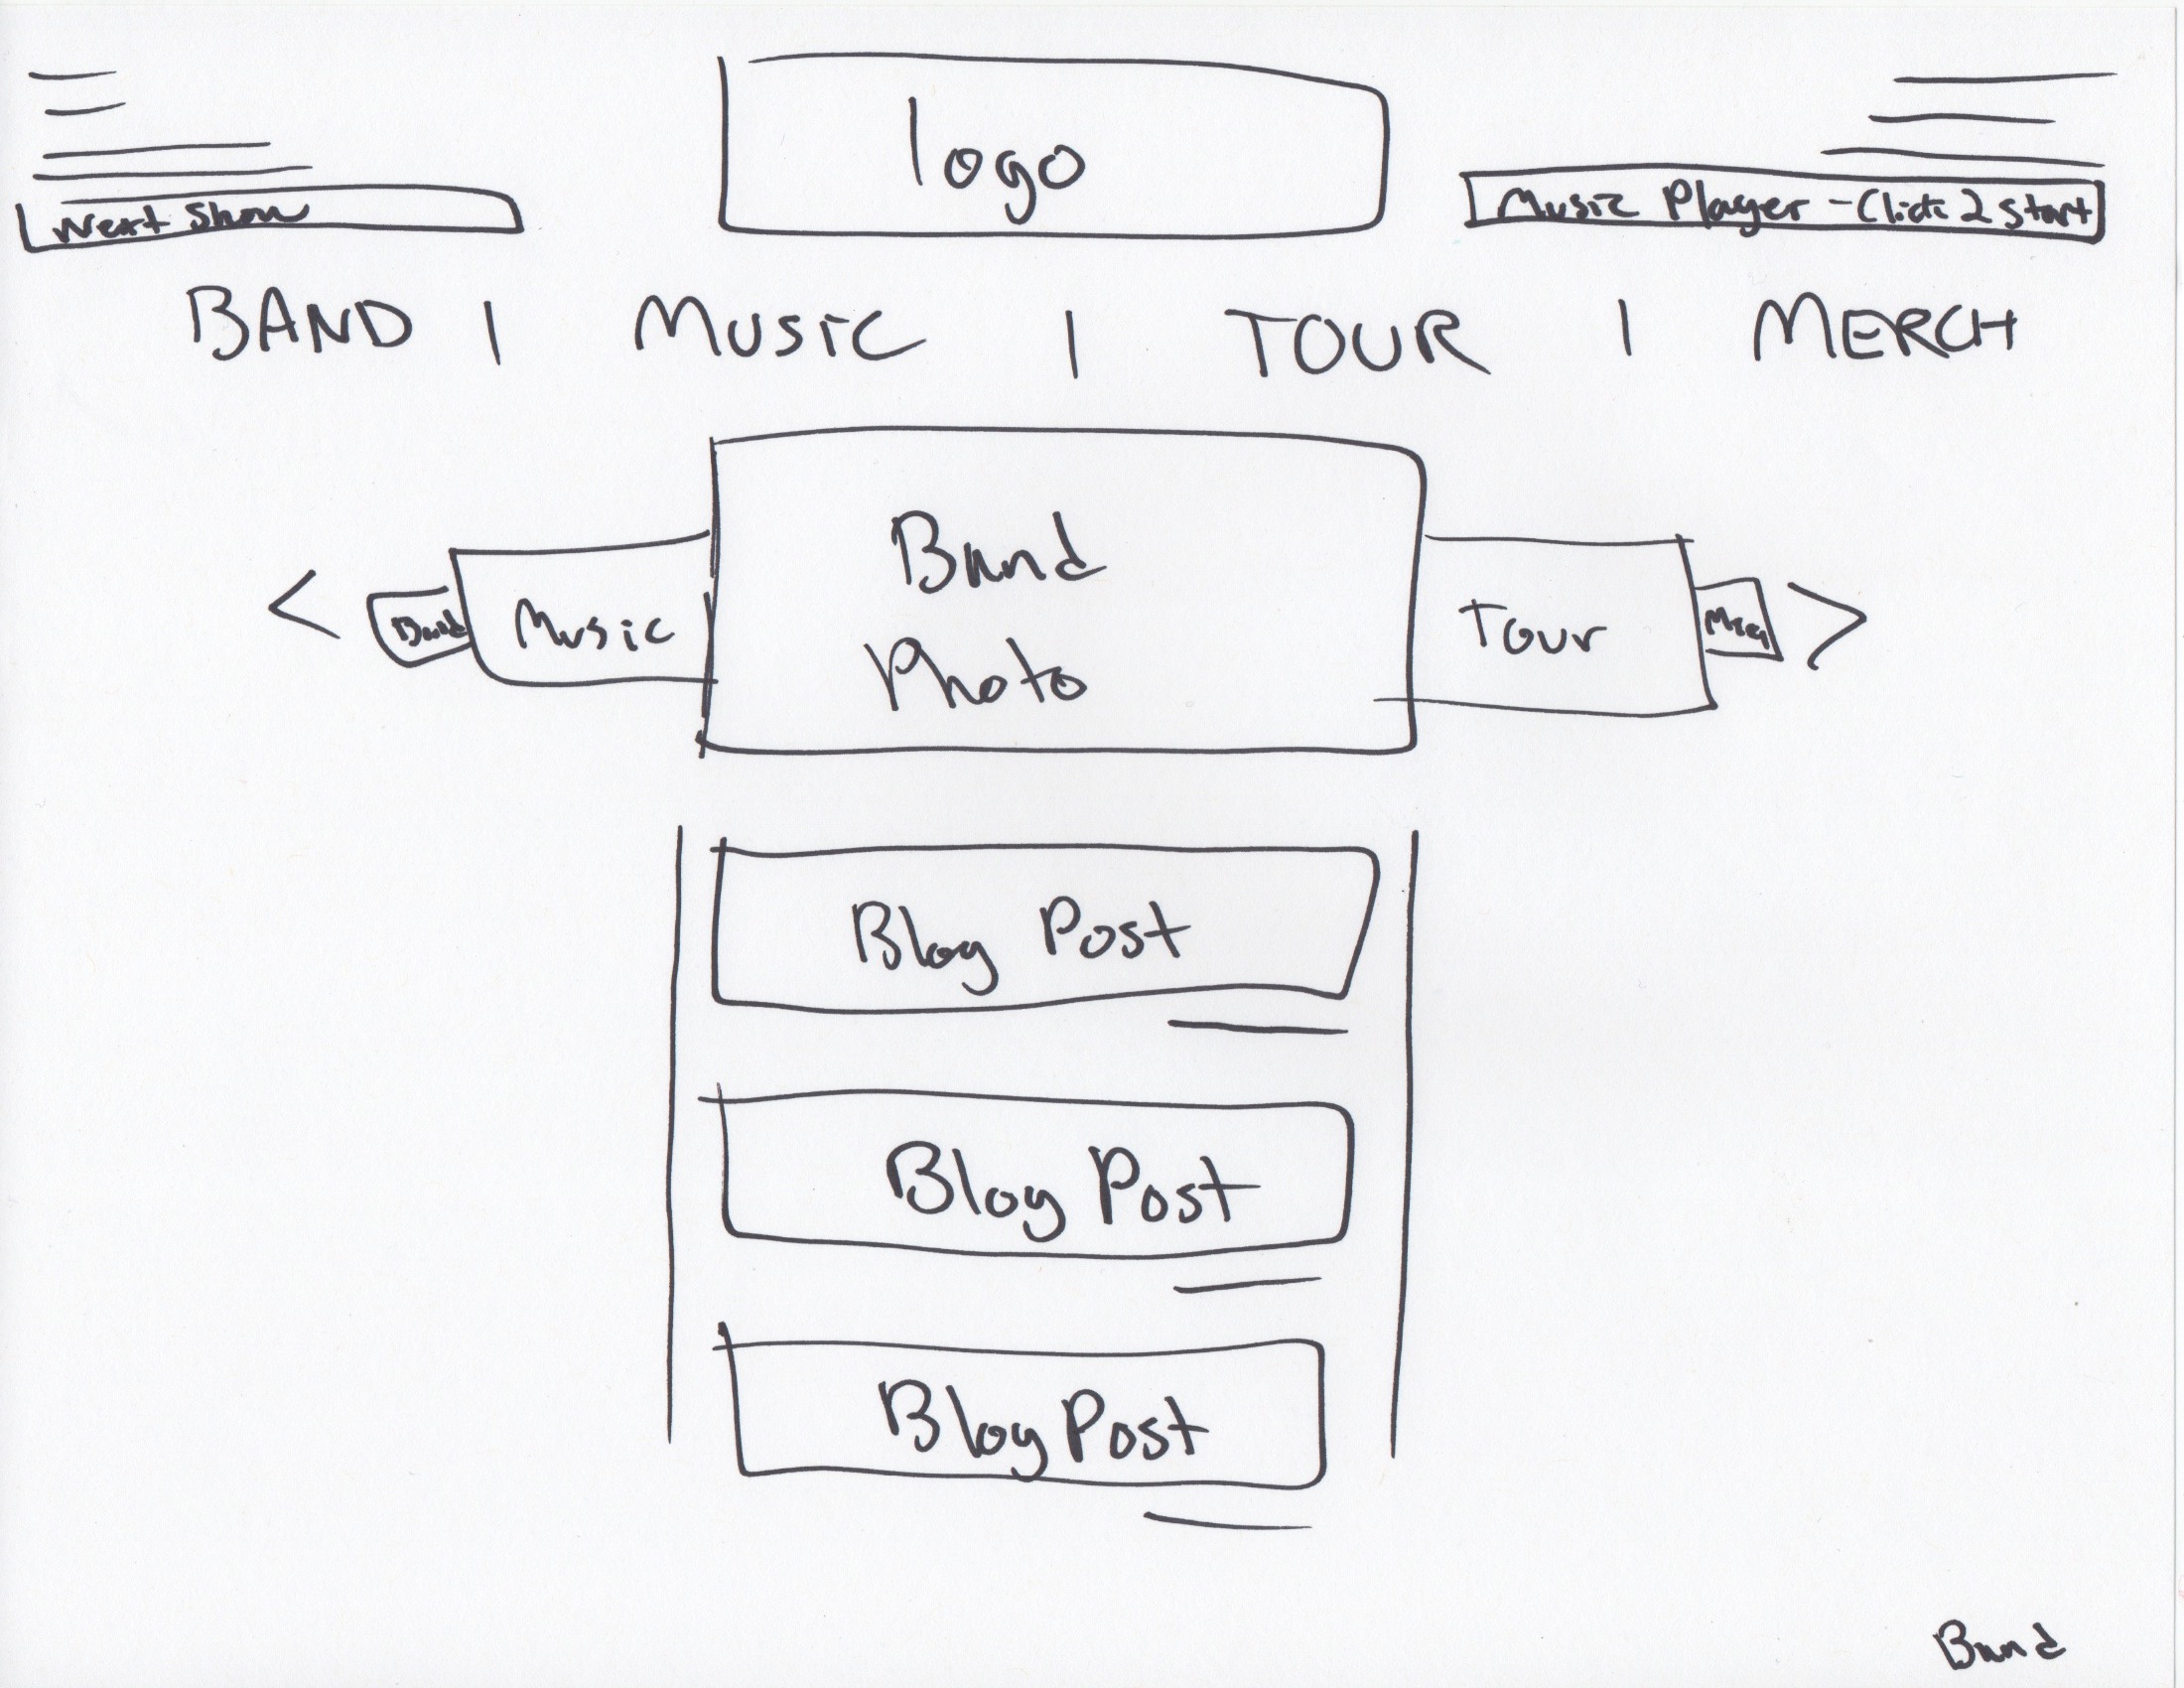 logo
Next Show
Music Player - Click 2 start
BAND | MUSIC | TOUR | MERCH
Band
Photo
Band
Music
Tour
Blog Post
Blog Post
Blog Post
Band